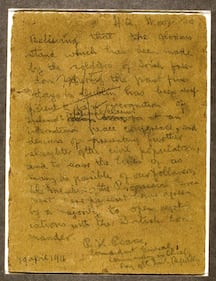 H.Q. Moore St
Believing that the glorious
stand which has been made
by the soldiers of Irish
freedom during the past five
days in Dublin has been
sufficient to gain recognition of
Ireland's national claim at an
international peace conference, and
desirous of preventing further
slaughter of the civil population
and to save the lives of as
many as possible of our followers,
the members of the Provisional
Government here present have
by a majority to open
negotiations with the British
commander.
P. H. Pearse
Commandant General,
Commander in Chief
Army of the Irish Republic
29 April 1916